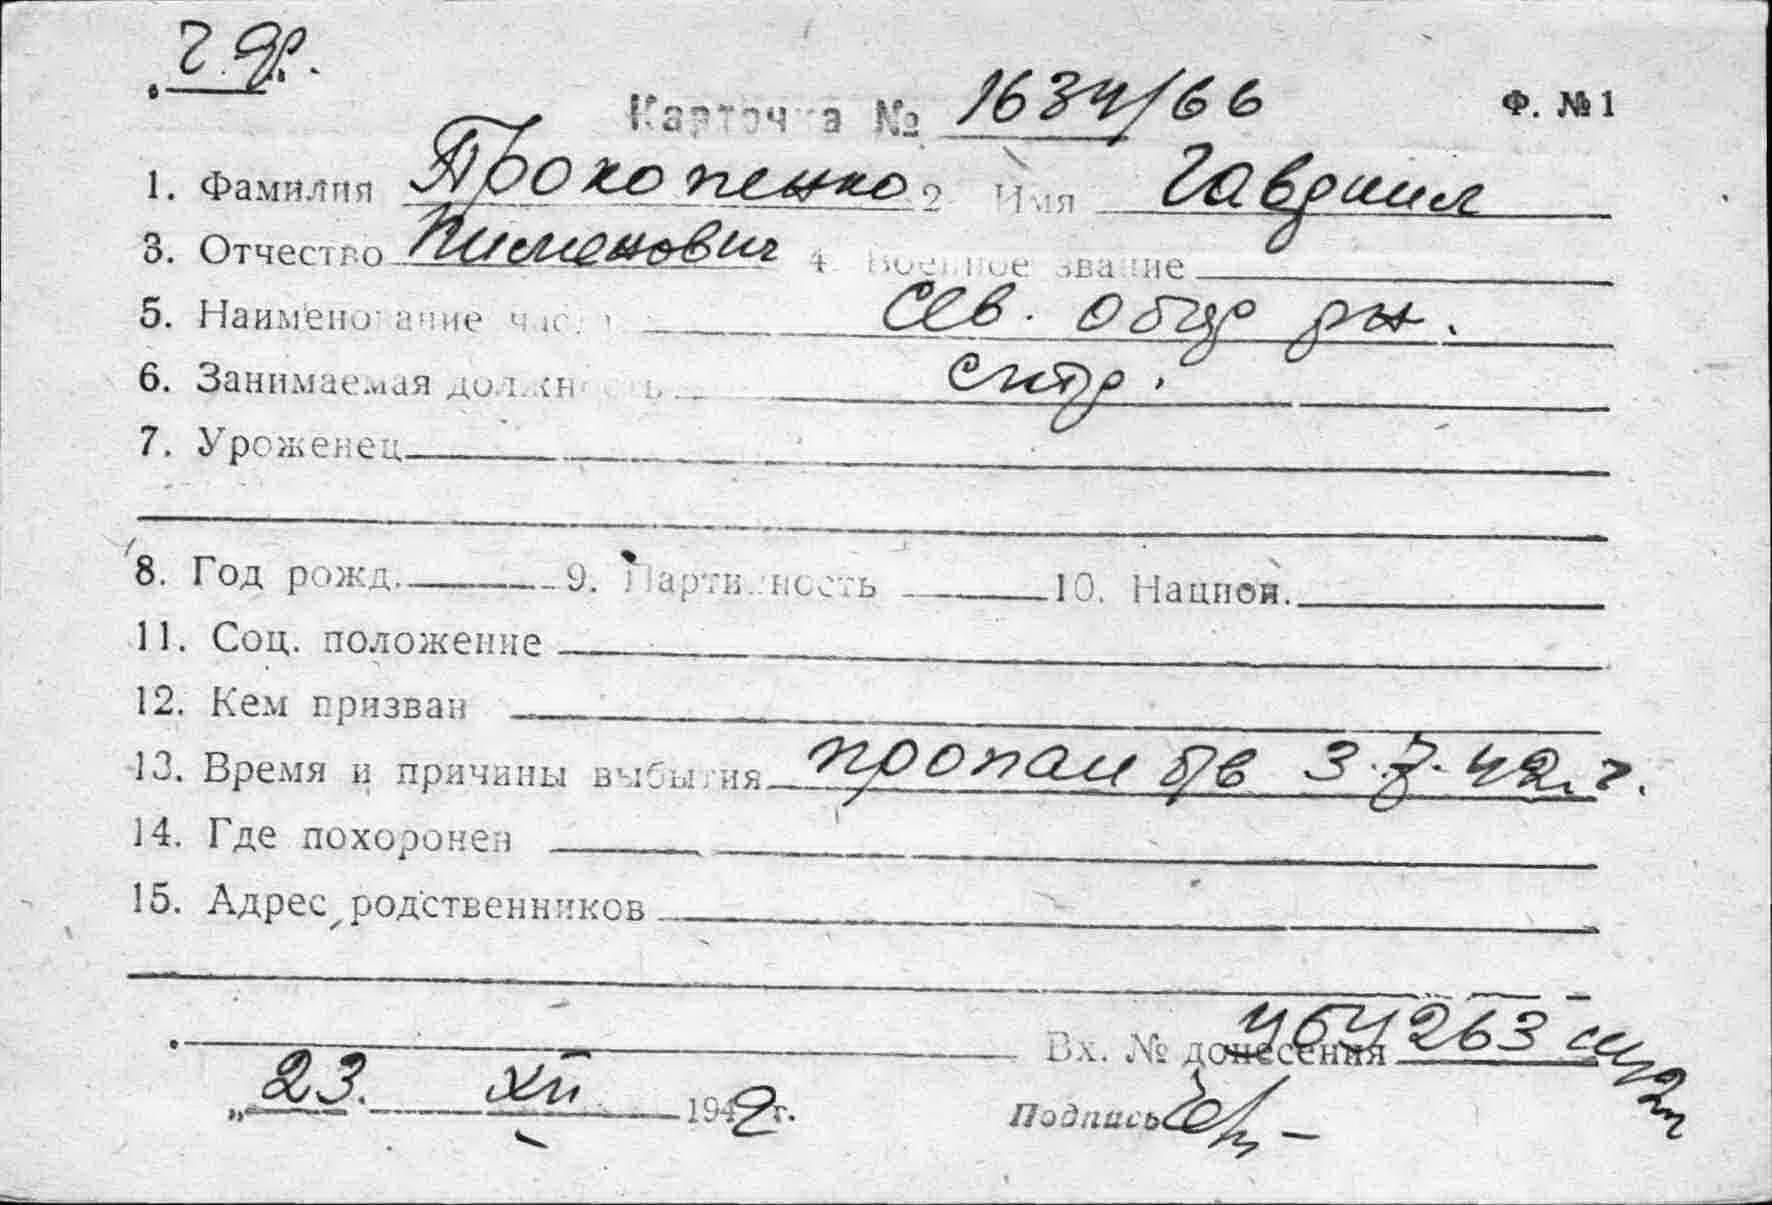 Карточка № 1634/66 Ф. № 1
1. Фамилия Прокопенко 2 Имя Гавриил
3. Отчество Пименович 4. Военное звание
5. Наименование части Сев. обор рн.
6. Занимаемая должность стр.
7. Уроженец
8. Год рожд. 9. Партийность 10. Национ.
11. Соц. положение
12. Кем призван
13. Время и причины выбытия пропал б/в 3.7.42 г.
14. Где похоронен
15. Адрес родственников
Вх. № донесения
„23. XII 1942 г.
Подпись